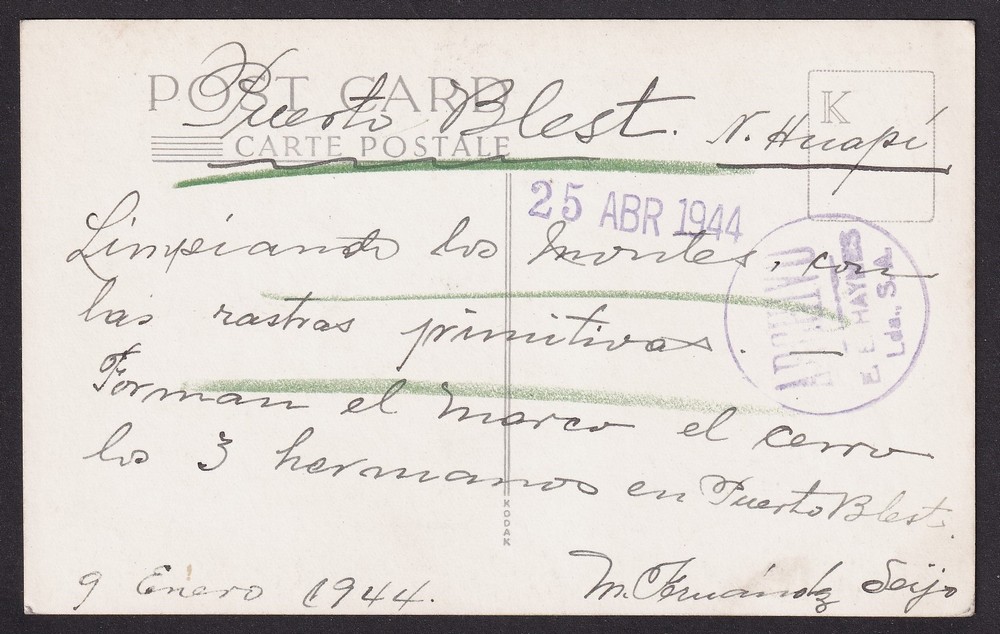 POST CARD
CARTE POSTALE
K
Puerto Blest. N. Huapí
25 ABR 1944
Limpiando los montes, con
las rastras primitivas.
Forman el marco el cerro
los 3 hermanos en Puerto Blest.
9 Enero 1944.
M. Fernández Seijo
KODAK
ARCHIVO
E. E. HAYNES
Lda., S.A.